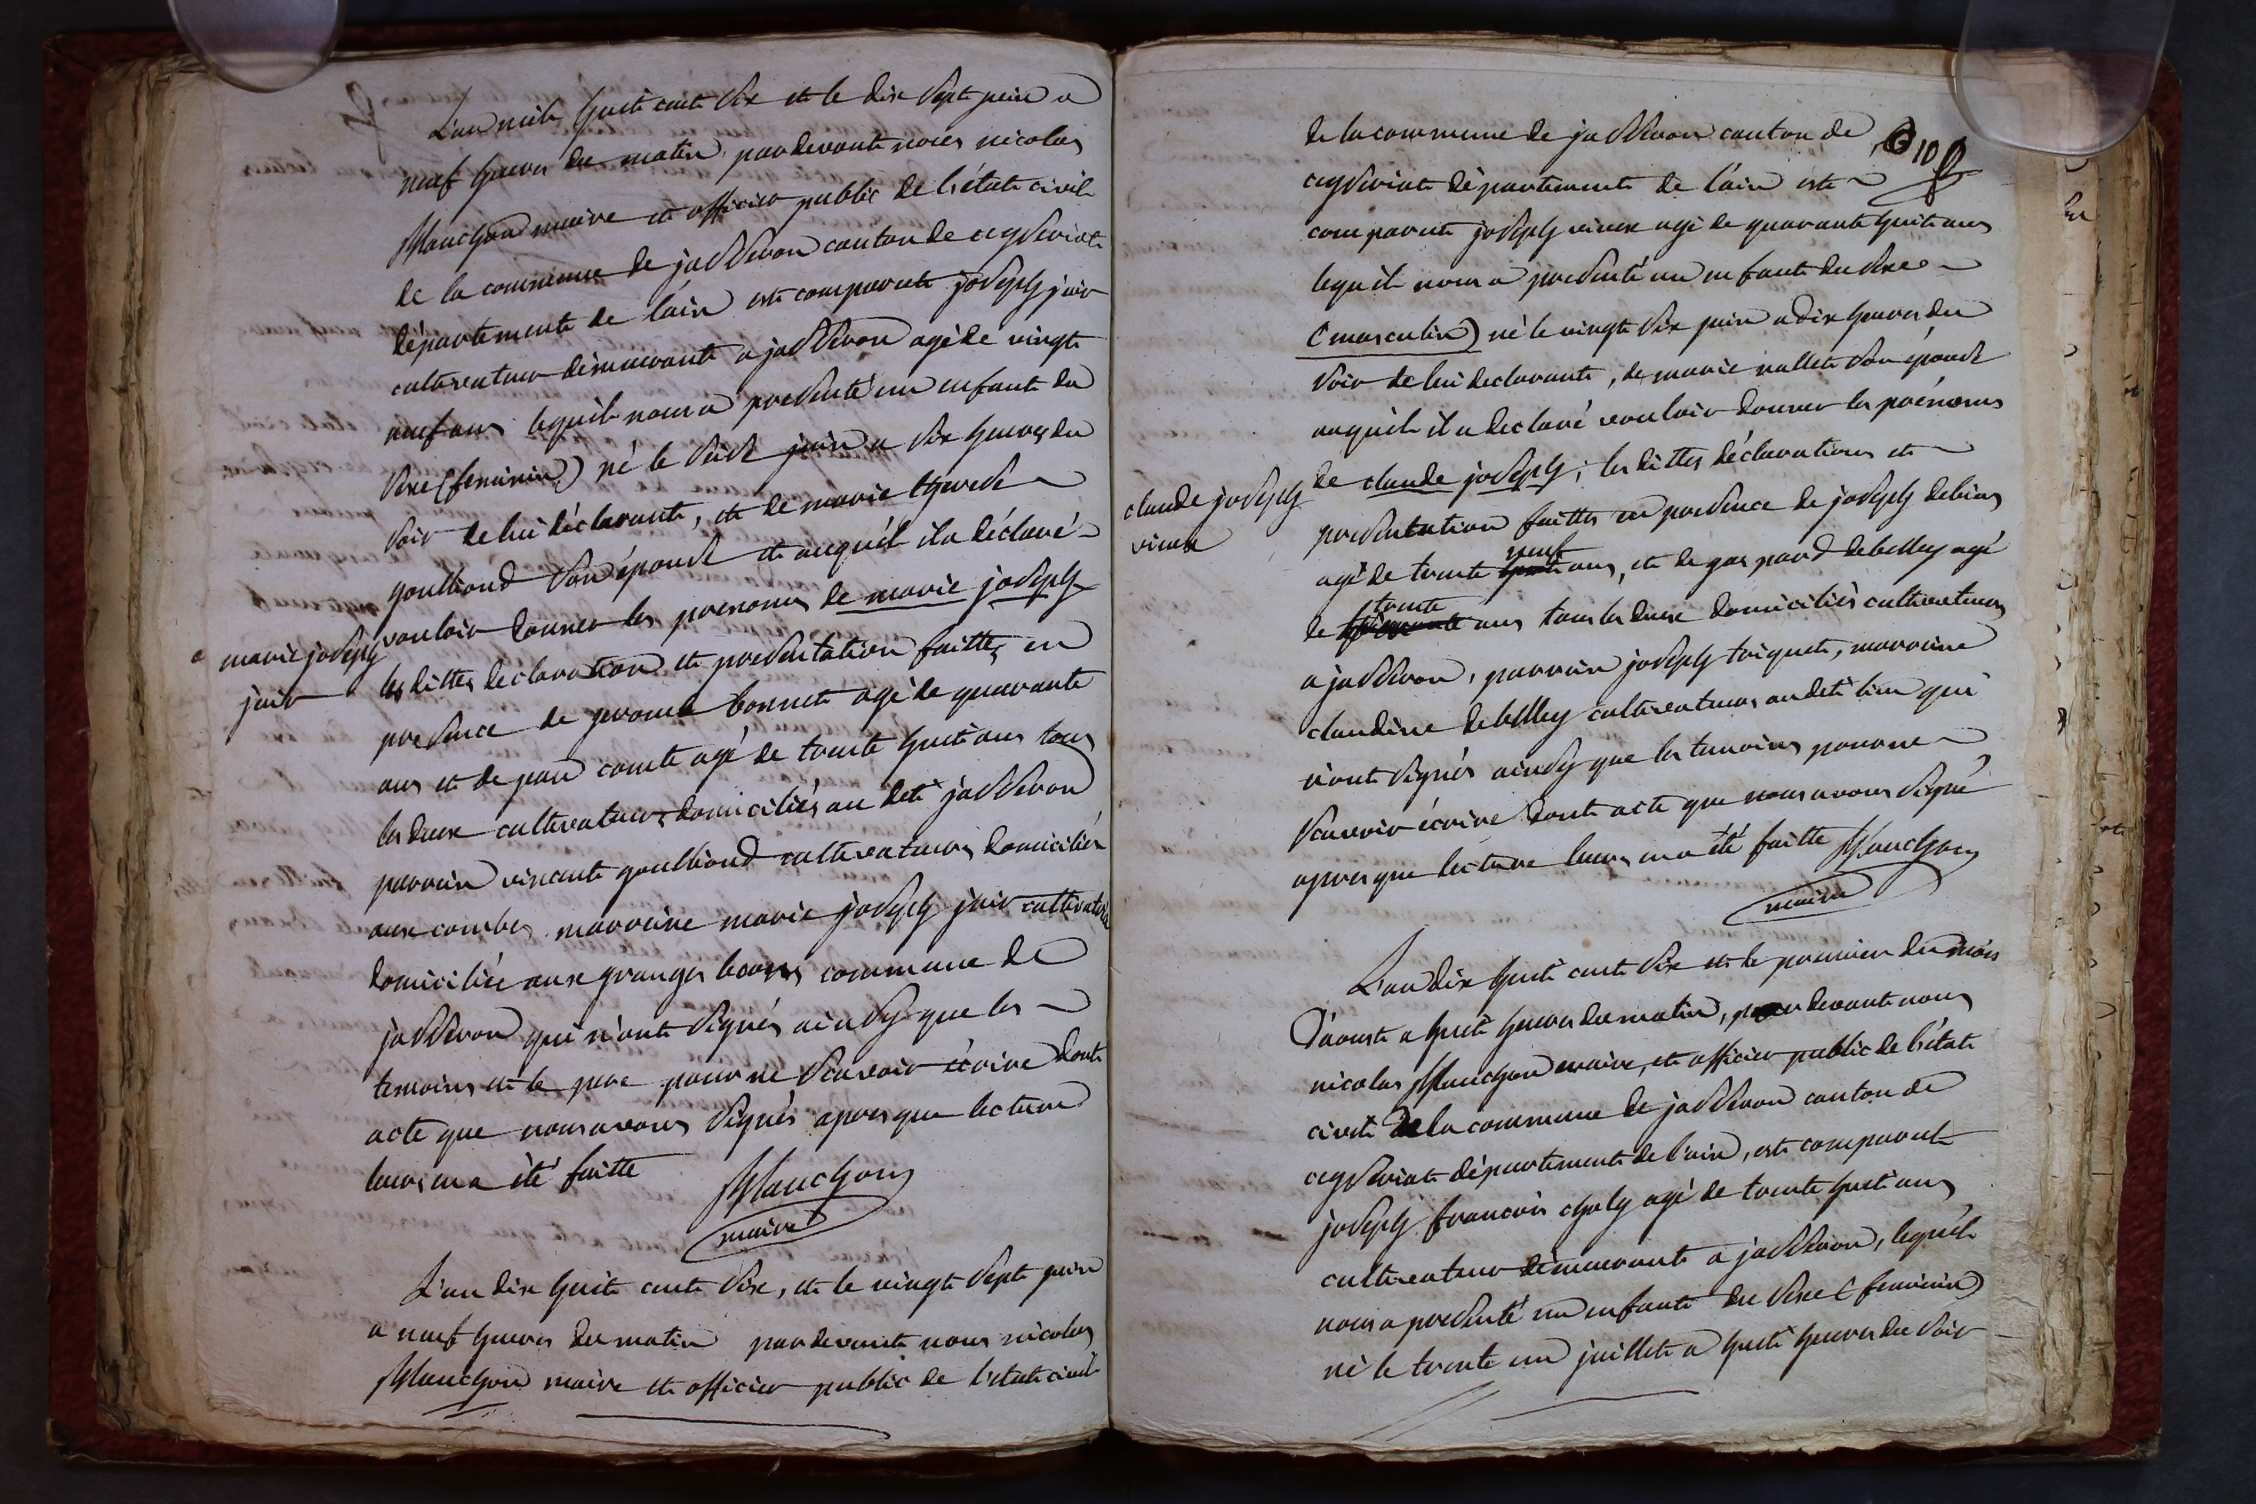 L'an mile huit cent six et le dix sept juin a
neuf heures du matin, pardevant nous nicolas
Planchon maire et officier public de l'état civil
de la commune de jasseron canton de ceyseriat
département de l'ain est comparut joseph juir
cultivateur démeurant a jasseron agé de vingt
neuf ans lequil nous a presenté un enfant du
sexe (feminin) né le seize juin a six heures du
soir de lui déclarant, et de marie therese
goullioud son épouse et auquél il a déclaré
vouloir donner les prenoms de marie joseph
marie joseph
juir
les dittes declaration et presentation faittes en
presence de jerome bonnet agé de quarante
ans et de jean comte agé de trente huit ans tous
les deux cultivateurs domiciliés au dit jasseron
parrain vincent goullioud cultivateurs domiciliés
aux combes marraine marie joseph juir cultivatrice
domiciliée aux granges bonnes commune de
jasseron qui n'ont signés ainsy que les
temoins et le pere pour ne scavoir écrire dont
acte que nous avons signés apres que lecture
leurs en a été faitte Planchon
maire
L'an dix huit cent six, et le vingt sept juin
a neuf heures du matin pardevant nous nicolas
Planchon maire et officier public de l'état civil
10
de la commune de jasseron canton de
ceyseriat département de l'ain est
comparut joseph vieux agé de quarante huit ans
lequil nous a presenté un enfant du sexe
(masculin) né le vingt six juin a dix heures du
soir de lui declarant, de marie vallet son épouse
auquil il a declaré vouloir donner les prénoms
de claude joseph, les dittes déclarations et
claude joseph
vieux
presentation faittes en presence de joseph debias
agé de trente neuf ans, et de gaspard debelley agé
de trente ans tous les deux domiciliés cultivateurs
a jasseron, parrain joseph triquet, marraine
claudine debelley cultivateurs audit lieu qui
n'ont signés ainsy que les temoins pour ne
scavoir écrire dont acte que nous avons signé
apres que lecture leurs en a été faitte Planchon
maire
L'an dix huit cent six et le premier du mois
d'aoust a huit heures du matin, par devant nous
nicolas Planchon maire, et officier public de l'état
civil de la commune de jasseron canton de
ceyseriat département de l'ain, est comparut
joseph francois chaly agé de trente huit ans
cultivateur démeurant a jasseron, lequél
nous a presenté un enfant du sexe (feminin)
né le trente un juillet a huit heures du soir